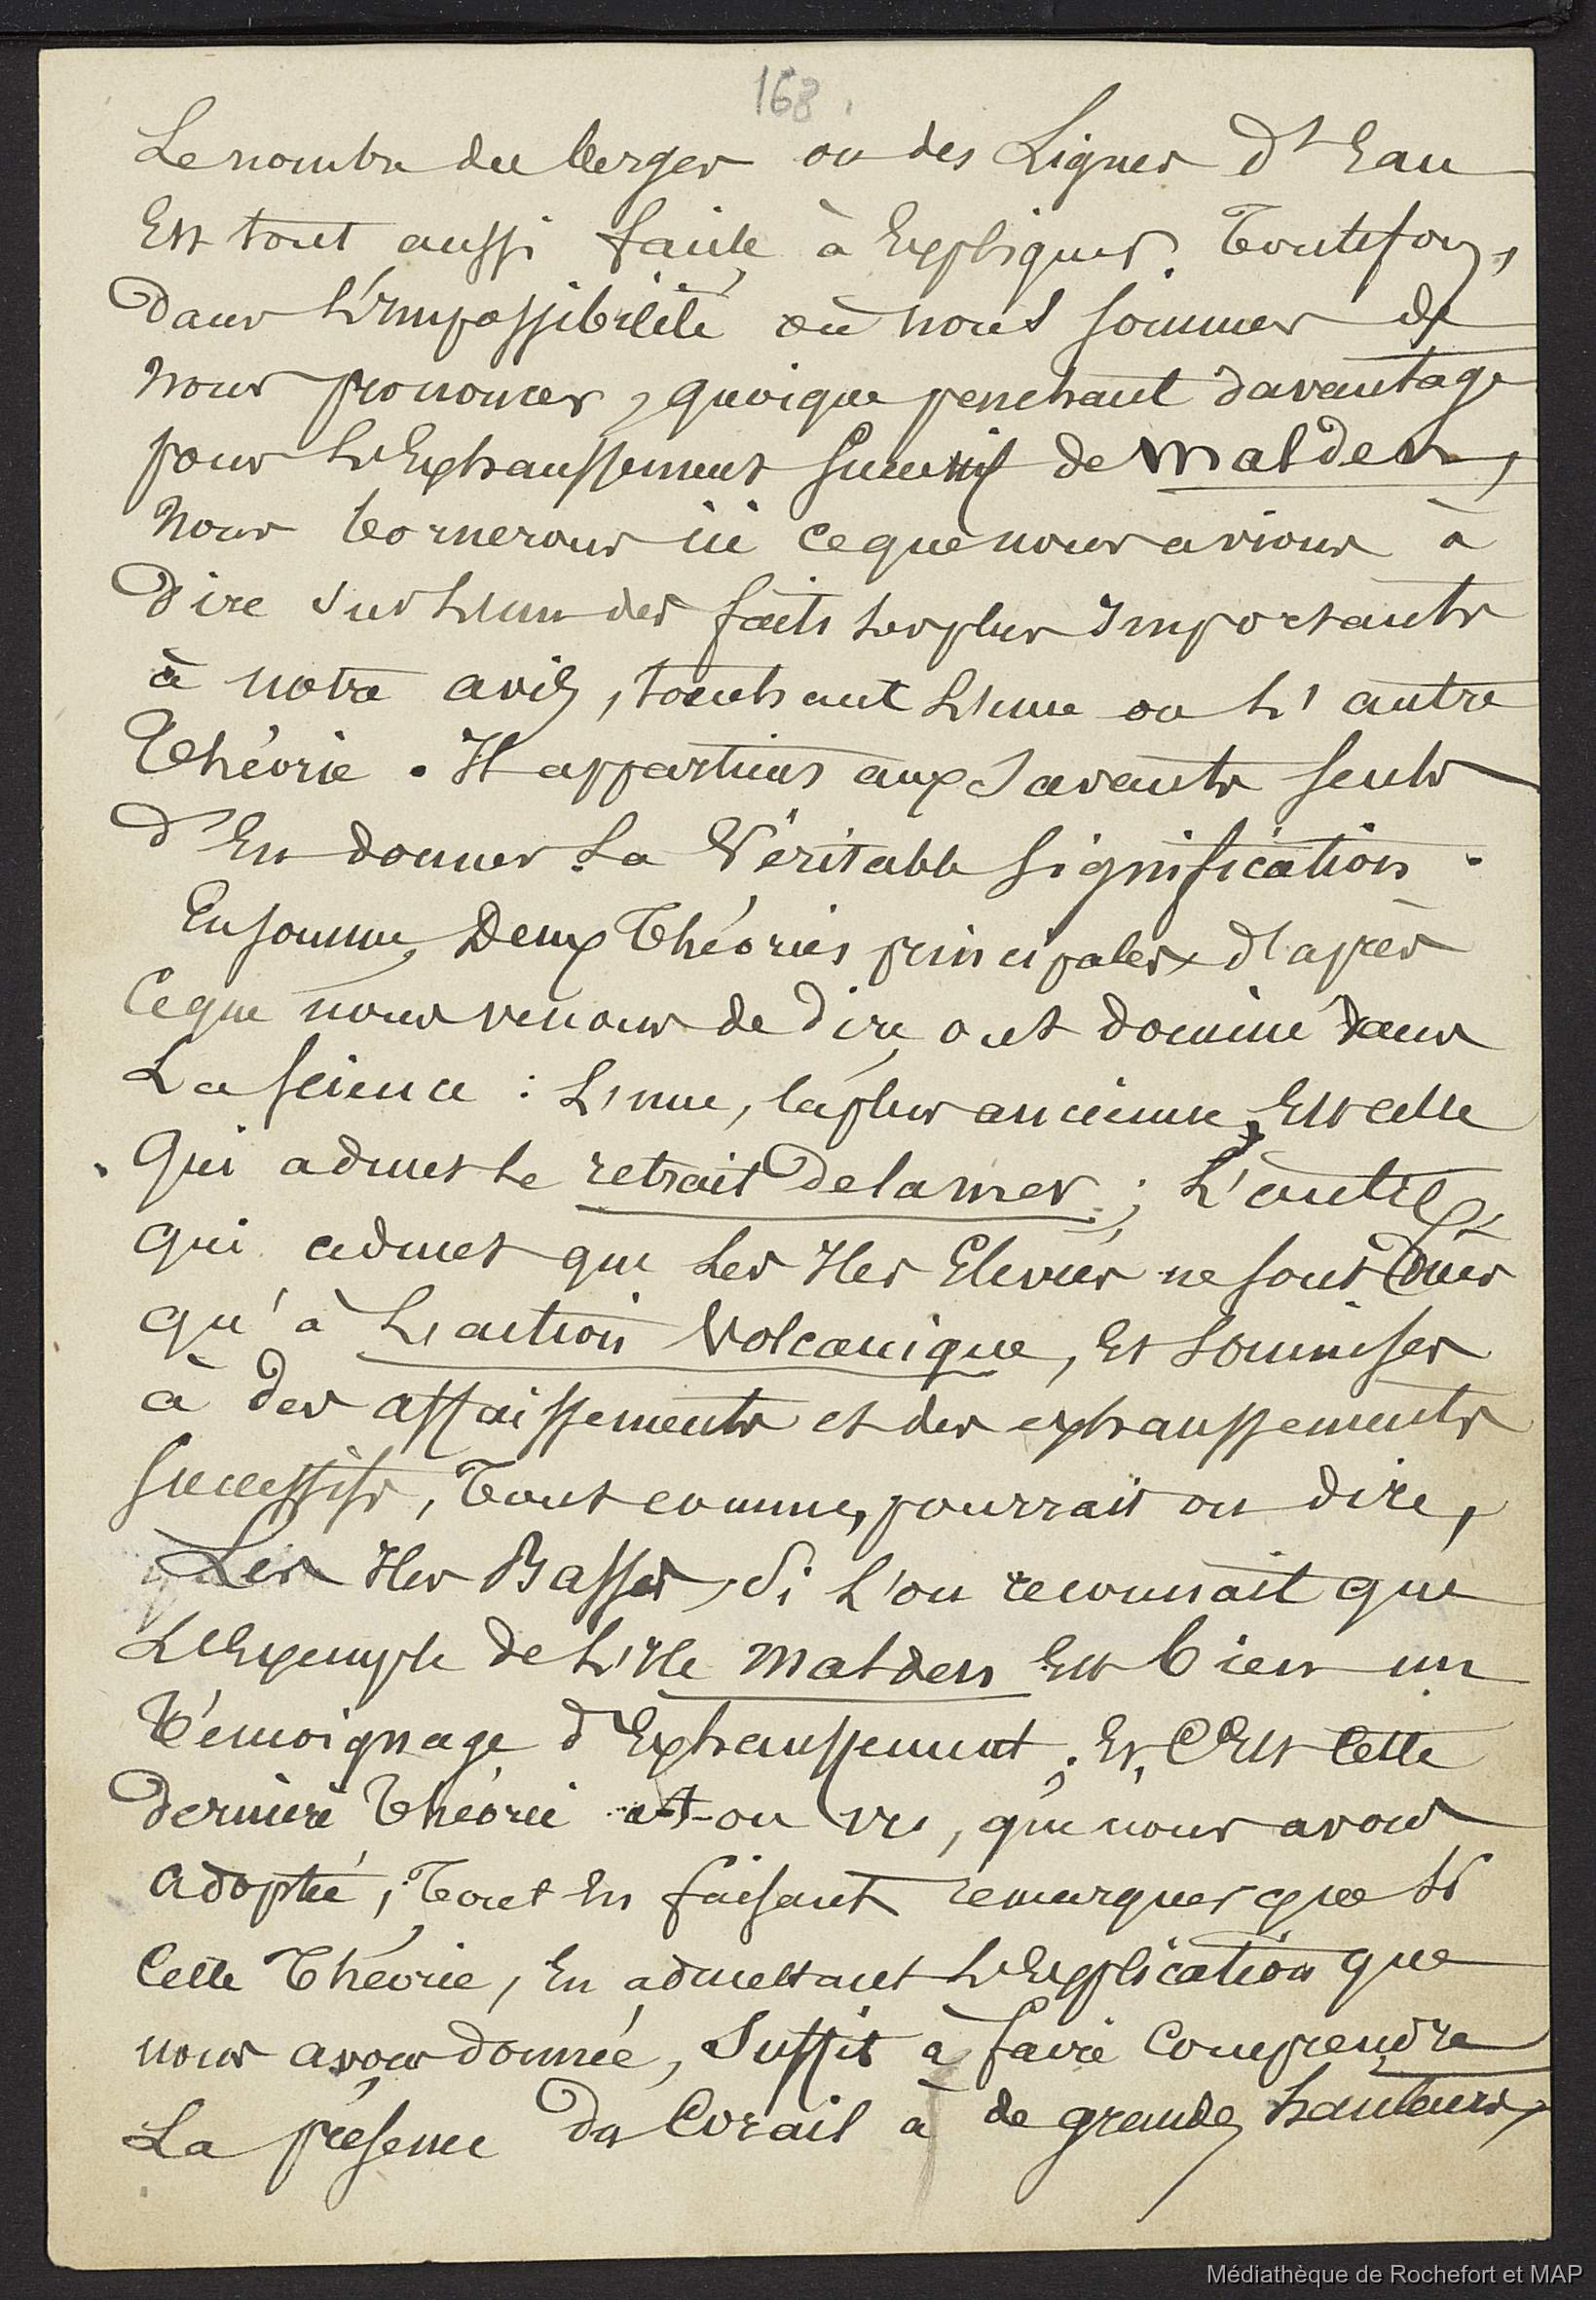 168.
Le nombre des berges ou des Lignes d'Eau
Est tout aussi facile à Expliquer. Toutefois,
dans L'Impossibilité où nous sommes de
nous prononcer, quoique penchant davantage
pour L'Exhaussement successif de Malden,
nous bornerons ici ce que nous avions à
dire sur L'un des faits les plus Importants
à notre avis, touchant L'une ou L'autre
Théorie. Il appartient aux Savants seuls
d'En donner La Véritable signification.
En somme, Deux Théories principales d'après
ce que nous venons de dire, ont dominé dans
La science : L'une, la plus ancienne, Est celle
qui admet le retrait de la mer ; L'autre,
qui admet que Les Iles Elevées ne sont dues
qu'à L'action Volcanique, Et soumises
à des affaissements et des exhaussements
successifs, Tout comme, pourrait on dire,
Les Iles Basses, Si L'on reconnait que
L'Exemple de L'Ile Malden Est bien un
Témoignage d'Exhaussement. Et, C'Est cette
dernière Théorie a-t-on vu, que nous avons
adoptée, Tout En faisant remarquer que si
cette Théorie, En admettant L'Explication que
nous avons donnée, Suffit à faire comprendre
La présence du Corail à de grandes hauteurs,
Médiathèque de Rochefort et MAP